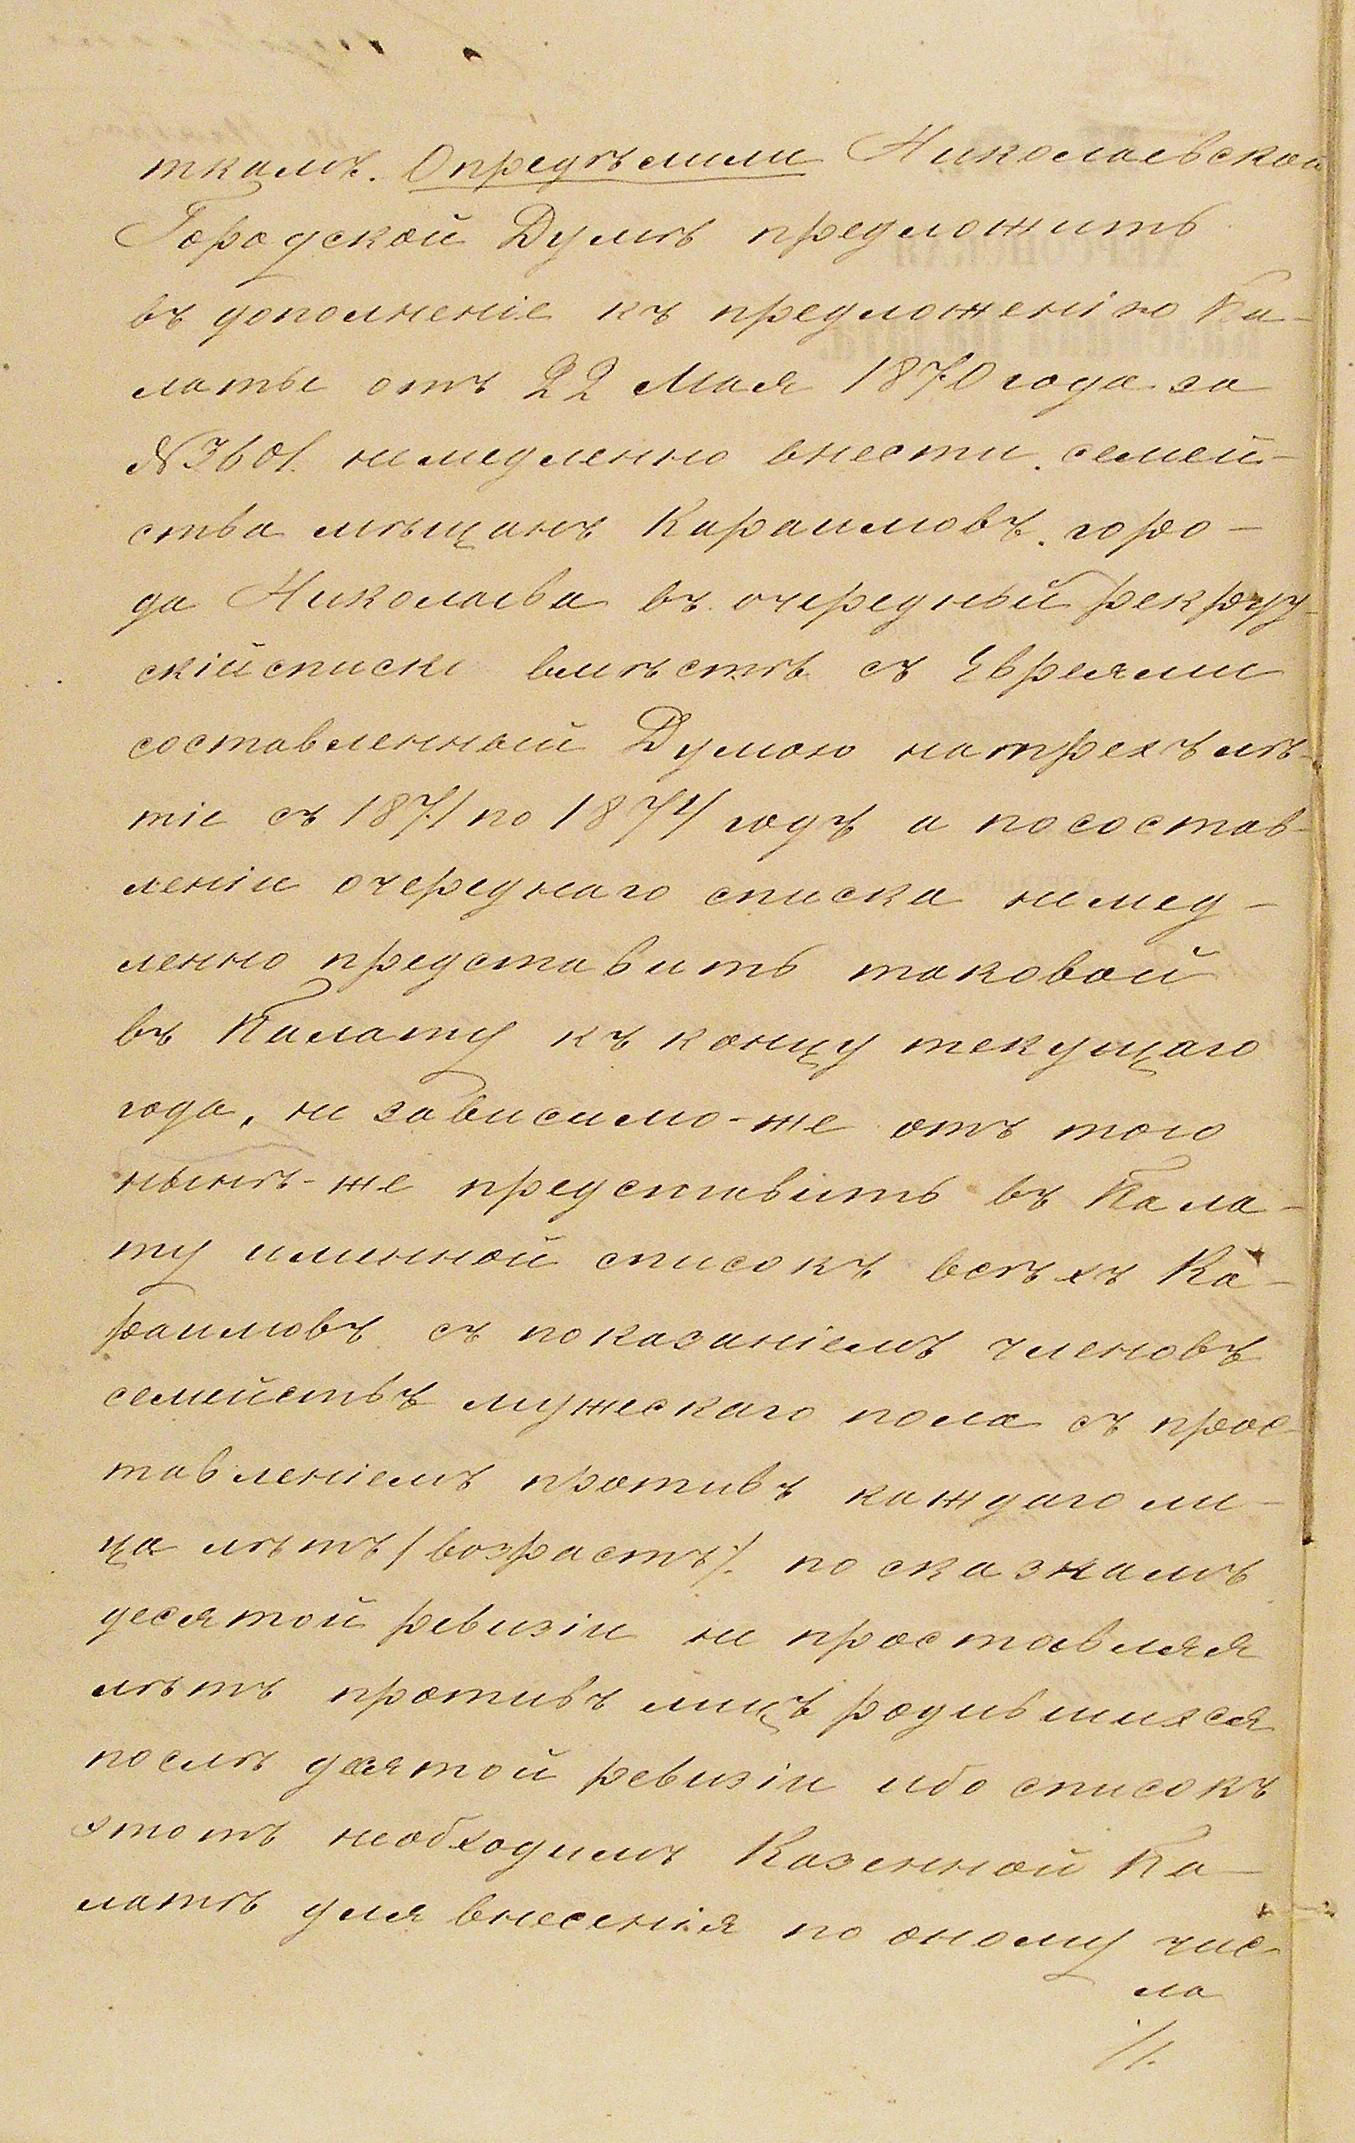 ткамъ. Опредѣлили Николаевской
Городской Думѣ предложить
въ дополненіе къ предложенію Па-
латы отъ 22 Мая 1870 года за
№ 3601. немедленно внести семей-
ства мѣщанъ Караимовъ. горо-
да Николаева въ очередный рекру-
скій списки вмѣстѣ съ Евреями
составленный Думою на трехълѣ-
тіе съ 1871 по 1874 годъ а по состав-
леніи очереднаго списка немед-
ленно представить таковой
въ Палату къ концу текущаго
года, не зависимо-же отъ того
нынѣ-же представить въ Пала-
ту именной списокъ всѣхъ Ка-
раимовъ съ показаніемъ членовъ
семействъ мужескаго пола съ прос-
тавленіемъ противъ каждаго ли-
ца лѣтъ /возрастъ/. по сказкамъ
десятой ревизіи не проставляя
лѣтъ противъ лицъ родившихся
послѣ десятой ревизіи ибо списокъ
этотъ необходимъ Казенной Па-
латѣ для внесенія по оному чис-
ла
/.